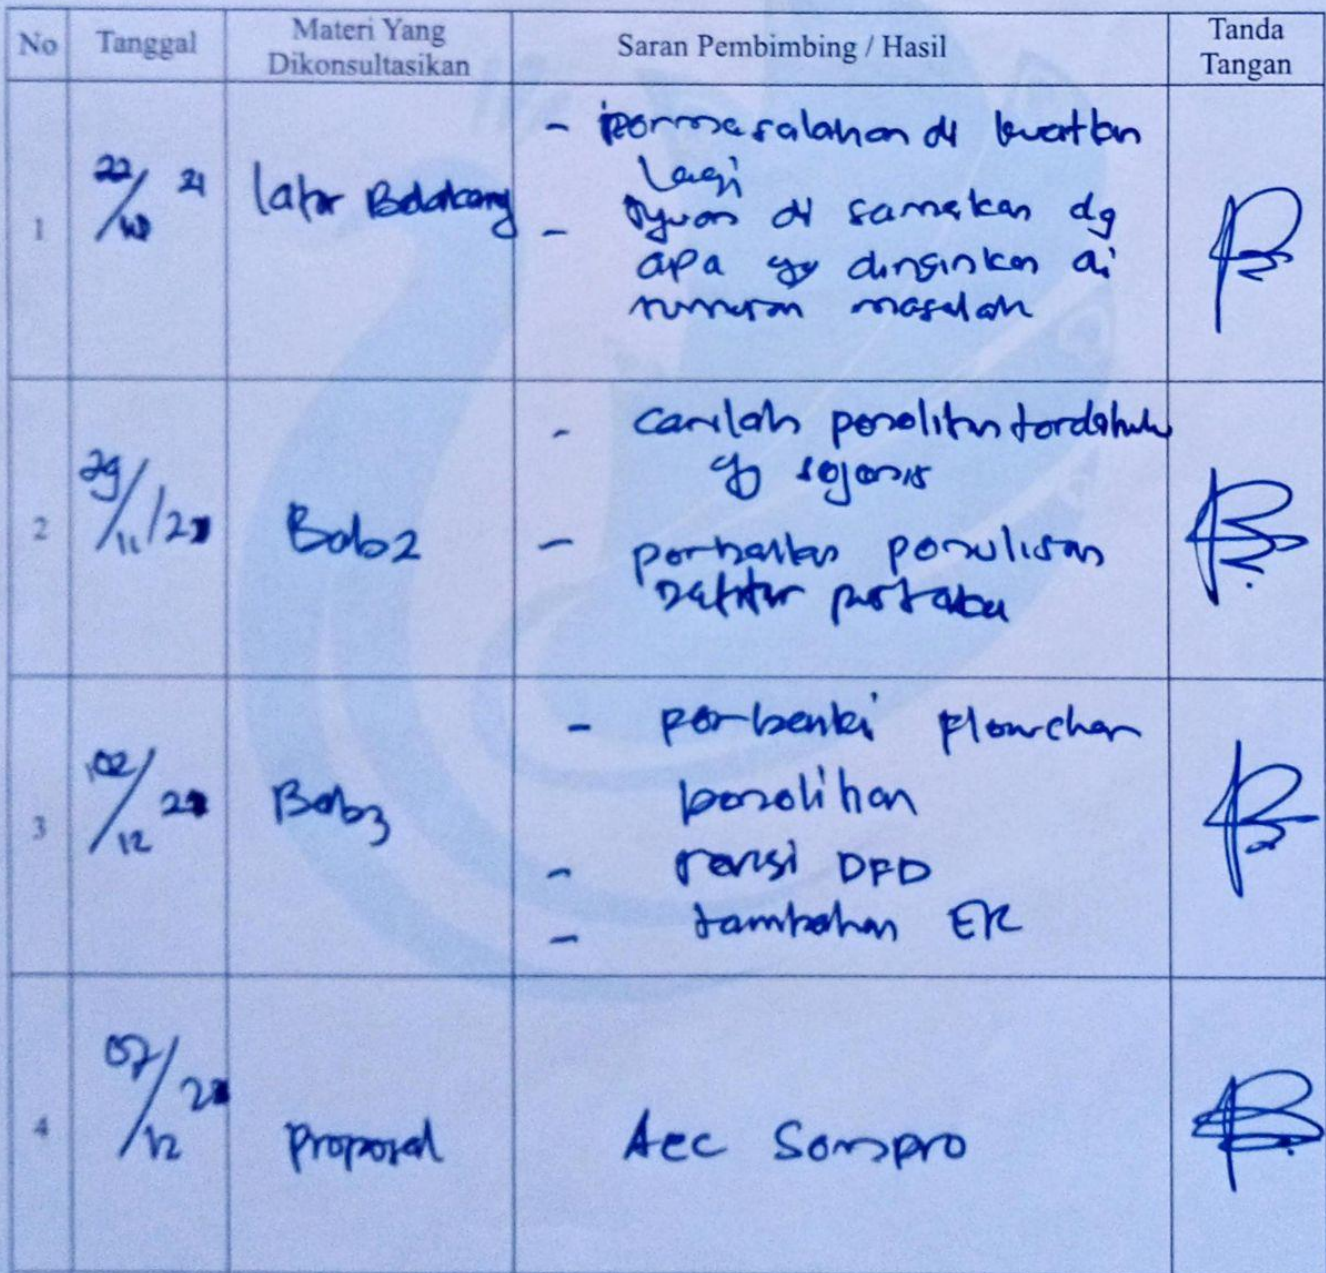 No Tanggal Materi Yang Dikonsultasikan Saran Pembimbing / Hasil Tanda Tangan
1 22/10 21 latar Belakang - permasalahan di kuatkan
lagi
- tujuan di samakan dg
apa yg diinginkan di
rumusan masalah
2 29/11/21 Bab 2 - carilah penelitian terdahulu
yg sejenis
- perbaikan penulisan
daftar pustaka
3 02/12 21 Bab 3 - perbaiki flowchar
penelitian
- revisi DFD
- tambahan ER
4 07/12 21 proposal Acc Sempro